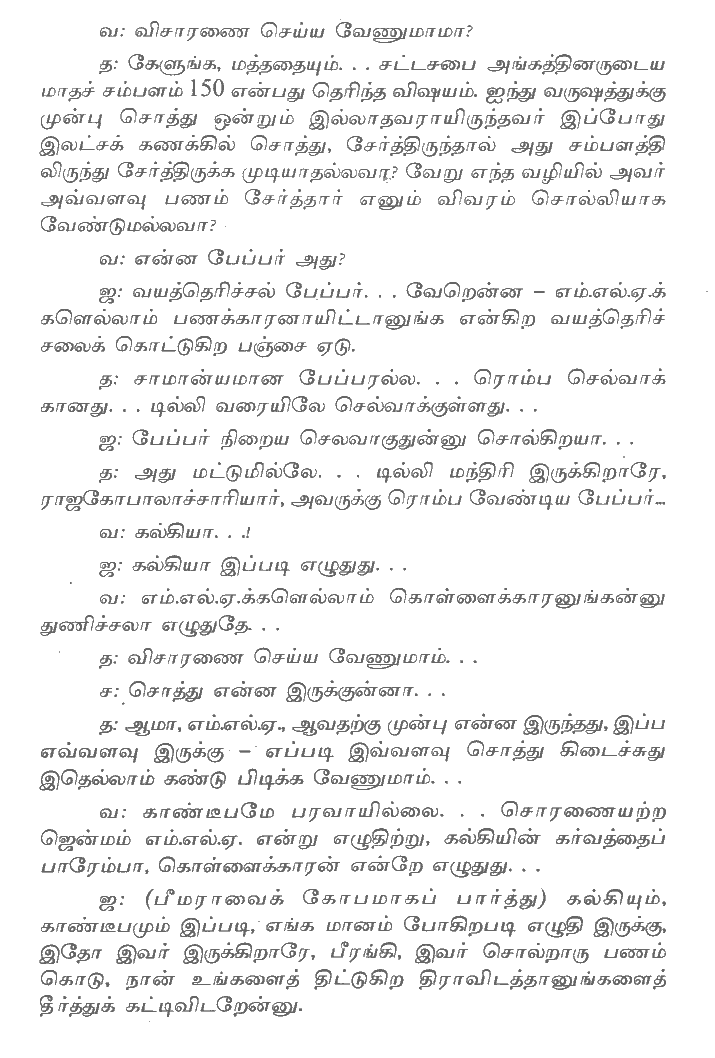 வ: விசாரணை செய்ய வேணுமாமா?
த: கேளுங்க, மத்ததையும். . . சட்டசபை அங்கத்தினருடைய
மாதச் சம்பளம் 150 என்பது தெரிந்த விஷயம். ஐந்து வருஷத்துக்கு
முன்பு சொத்து ஒன்றும் இல்லாதவராயிருந்தவர் இப்போது
இலட்சக் கணக்கில் சொத்து, சேர்த்திருந்தால் அது சம்பளத்தி
லிருந்து சேர்த்திருக்க முடியாதல்லவா? வேறு எந்த வழியில் அவர்
அவ்வளவு பணம் சேர்த்தார் எனும் விவரம் சொல்லியாக
வேண்டுமல்லவா?
வ: என்ன பேப்பர் அது?
ஜ: வயத்தெரிச்சல் பேப்பர். . . வேறென்ன – எம்.எல்.ஏ.க்
களெல்லாம் பணக்காரனாயிட்டானுங்க என்கிற வயத்தெரிச்
சலைக் கொட்டுகிற பஞ்சை ஏடு.
த: சாமான்யமான பேப்பரல்ல. . . ரொம்ப செல்வாக்
கானது. . . டில்லி வரையிலே செல்வாக்குள்ளது. . .
ஜ: பேப்பர் நிறைய செலவாகுதுன்னு சொல்கிறயா. . .
த: அது மட்டுமில்லே. . . டில்லி மந்திரி இருக்கிறாரே,
ராஜகோபாலாச்சாரியார், அவருக்கு ரொம்ப வேண்டிய பேப்பர்...
வ: கல்கியா. . .!
ஜ: கல்கியா இப்படி எழுதுது. . .
வ: எம்.எல்.ஏ.க்களெல்லாம் கொள்ளைக்காரனுங்கன்னு
துணிச்சலா எழுதுதே. . .
த: விசாரணை செய்ய வேணுமாம். . .
ச: சொத்து என்ன இருக்குன்னா. . .
த: ஆமா, எம்.எல்.ஏ., ஆவதற்கு முன்பு என்ன இருந்தது, இப்ப
எவ்வளவு இருக்கு – எப்படி இவ்வளவு சொத்து கிடைச்சுது
இதெல்லாம் கண்டு பிடிக்க வேணுமாம். . .
வ: காண்டீபமே பரவாயில்லை. . . சொரணையற்ற
ஜென்மம் எம்.எல்.ஏ. என்று எழுதிற்று, கல்கியின் கர்வத்தைப்
பாரேம்பா, கொள்ளைக்காரன் என்றே எழுதுது. . .
ஜ: (பீமராவைக் கோபமாகப் பார்த்து) கல்கியும்,
காண்டீபமும் இப்படி, எங்க மானம் போகிறபடி எழுதி இருக்கு,
இதோ இவர் இருக்கிறாரே, பீரங்கி, இவர் சொல்றாரு பணம்
கொடு, நான் உங்களைத் திட்டுகிற திராவிடத்தானுங்களைத்
தீர்த்துக் கட்டிவிடறேன்னு.